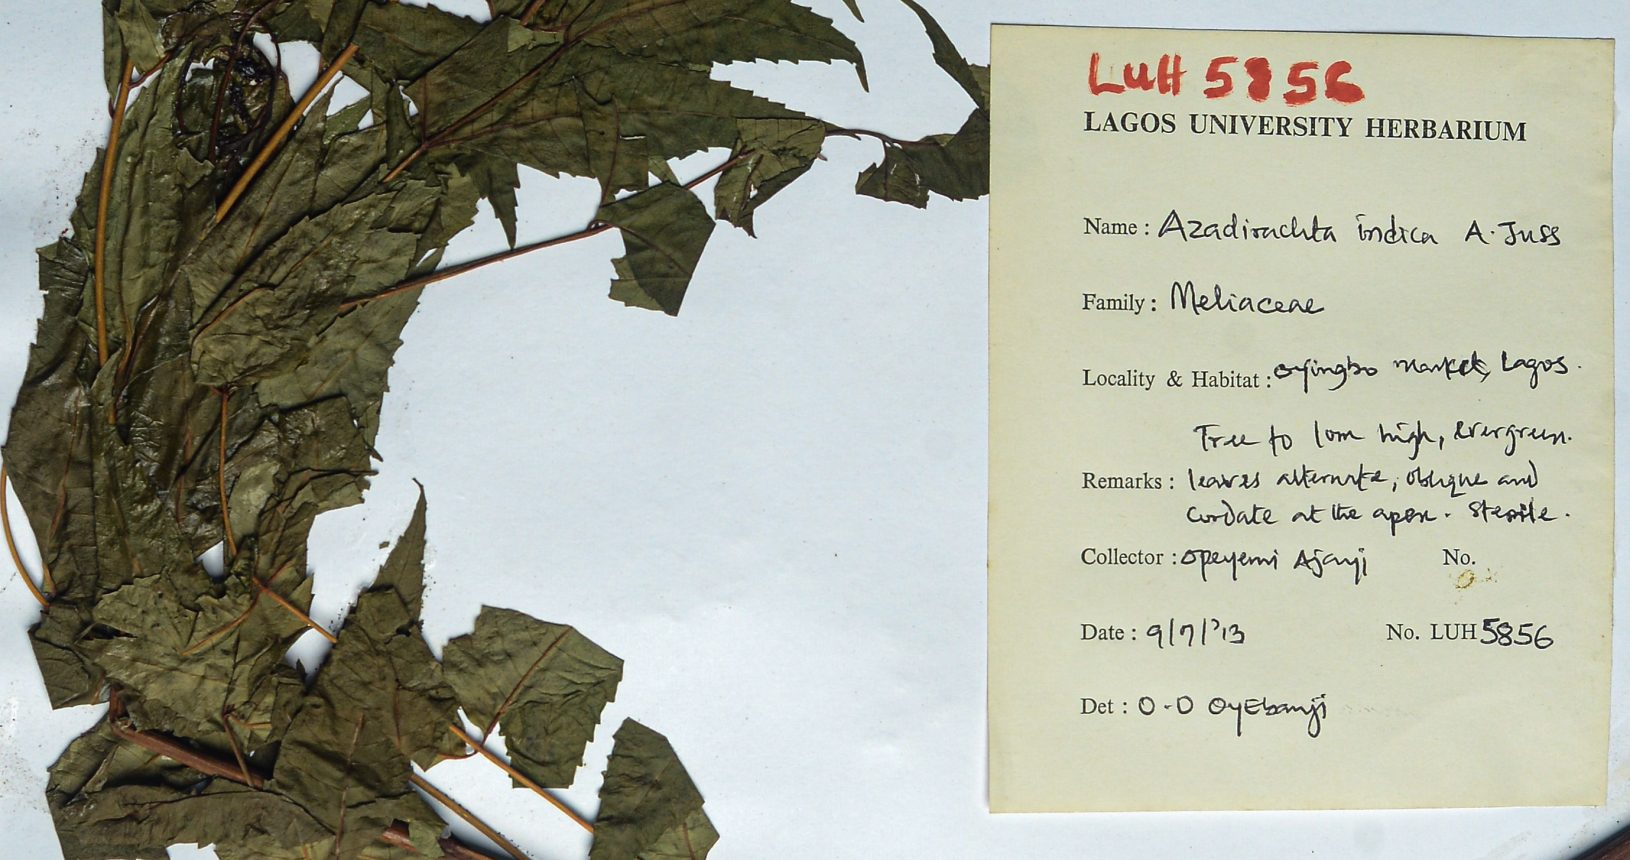 LUH 5856
LAGOS UNIVERSITY HERBARIUM
Name: Azadirachta indica A. Juss
Family: Meliaceae
Locality & Habitat: oyingbo market, Lagos.
Tree to 10m high, Evergreen.
Remarks: leaves alternate, oblique and
cordate at the apex. Sterile.
Collector: Opeyemi Ajayi No.
Date: 9/7/'13 No. LUH 5856
Det: O.O OyEbanji